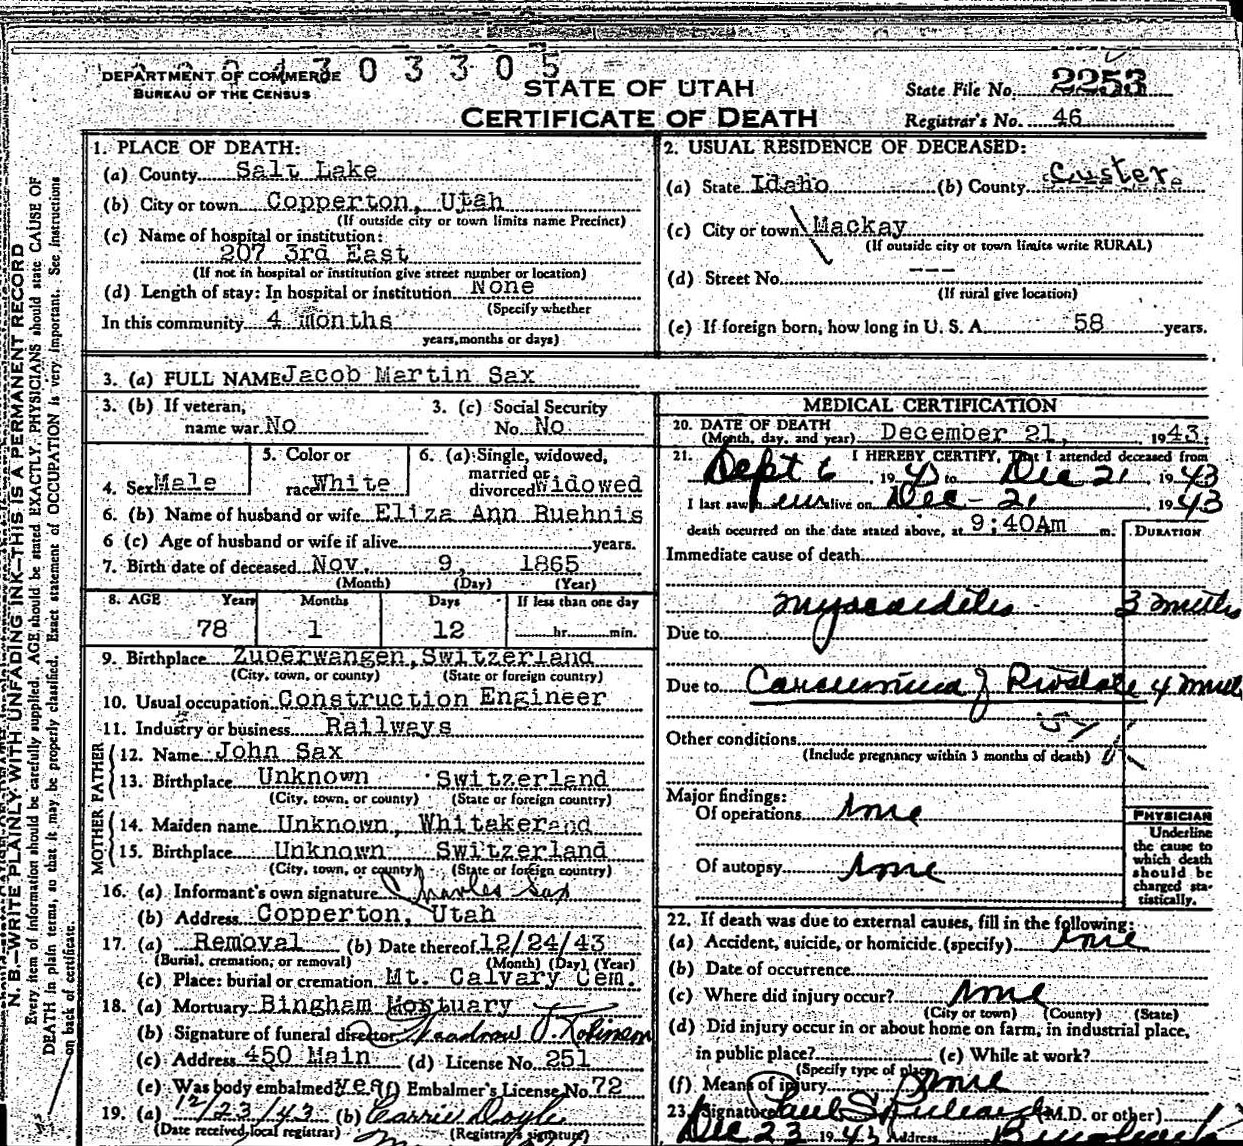 2243 0 3 3 0 5
DEPARTMENT OF COMMERCE
BUREAU OF THE CENSUS
STATE OF UTAH
CERTIFICATE OF DEATH
State File No. 2253
Registrar's No. 46
N. B.—WRITE PLAINLY WITH UNFADING INK—THIS IS A PERMANENT RECORD
Every item of information should be carefully supplied. AGE should be stated EXACTLY. PHYSICIANS should state CAUSE OF
DEATH in plain terms, so that it may be properly classified. Exact statement of OCCUPATION is very important. See instructions
on back of certificate.
1. PLACE OF DEATH:
(a) County Salt Lake
(b) City or town Copperton, Utah
(If outside city or town limits name Precinct)
(c) Name of hospital or institution:
207 3rd East
(If not in hospital or institution give street number or location)
(d) Length of stay: In hospital or institution None
(Specify whether
In this community 4 Months
years, months or days)
2. USUAL RESIDENCE OF DECEASED:
(a) State Idaho (b) County Custer
(c) City or town Mackay
(If outside city or town limits write RURAL)
(d) Street No. ---
(If rural give location)
(e) If foreign born, how long in U. S. A. 58 years.
3. (a) FULL NAME Jacob Martin Sax
3. (b) If veteran, name war No
3. (c) Social Security No. No
4. Sex Male
5. Color or race White
6. (a) Single, widowed, married or divorced Widowed
6. (b) Name of husband or wife Eliza Ann Ruehnis
6 (c) Age of husband or wife if alive years.
7. Birth date of deceased Nov. 9, 1865
(Month) (Day) (Year)
8. AGE Years Months Days If less than one day
78 1 12 hr. min.
9. Birthplace Zuberwangen, Switzerland
(City, town, or county) (State or foreign country)
10. Usual occupation Construction Engineer
11. Industry or business Railways
FATHER
12. Name John Sax
13. Birthplace Unknown Switzerland
(City, town, or county) (State or foreign country)
MOTHER
14. Maiden name Unknown, Whitaker
15. Birthplace Unknown Switzerland
(City, town, or county) (State or foreign country)
16. (a) Informant's own signature Charles Sax
(b) Address Copperton, Utah
17. (a) Removal (b) Date thereof 12/24/43
(Burial, cremation, or removal) (Month) (Day) (Year)
(c) Place: burial or cremation Mt. Calvary Cem.
18. (a) Mortuary Bingham Mortuary
(b) Signature of funeral director Woodrow J. Robinson
(c) Address 450 Main (d) License No. 251
(e) Was body embalmed yes (f) Embalmer's License No. 72
19. (a) 12/23/43 (b) Carrie Doyle
(Date received local registrar) (Registrar's signature)
MEDICAL CERTIFICATION
20. DATE OF DEATH
(Month, day, and year) December 21, 1943.
21. I HEREBY CERTIFY, That I attended deceased from
Sept 6, 1943 to Dec 21, 1943
I last saw him alive on Dec - 21, 1943
death occurred on the date stated above, at 9:40Am m.
DURATION
Immediate cause of death
Myocarditis 3 months
Due to
Due to Carcinoma of Prostate 4 months
51
Other conditions
(Include pregnancy within 3 months of death)
Major findings:
Of operations none
Of autopsy none
PHYSICIAN
Underline
the cause to
which death
should be
charged sta-
tistically.
22. If death was due to external causes, fill in the following:
(a) Accident, suicide, or homicide (specify) none
(b) Date of occurrence
(c) Where did injury occur? none
(City or town) (County) (State)
(d) Did injury occur in or about home on farm, in industrial place,
in public place? (e) While at work?
(Specify type of place)
(f) Means of injury none
23. Signature Paul S. (M.D. or other)
Dec 23 1943 Address